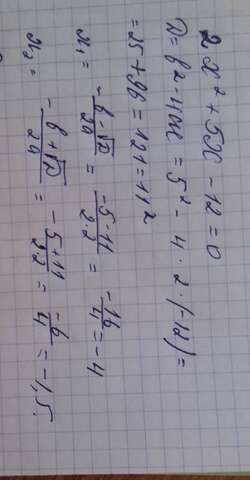 2x² + 5x - 12 = 0
D = b² - 4ac = 5² - 4 · 2 · (-12) =
= 25 + 96 = 121 = 11²
x₁ = -b-√D/2a = -5-11/2·2 = -16/4 = -4
x₂ = -b+√D/2a = -5+11/2·2 = -6/4 = -1,5.